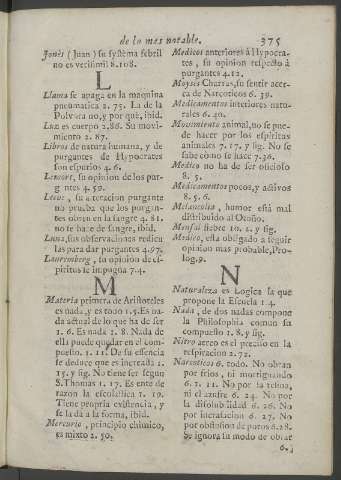 de lo mas notable. 375
Jonès ( Juan ) su systèma febril
no es verisimil 8.108.
L
Llama se apaga en la maquina
pneumatica 2. 75. La de la
Polvora no, y por què, ibid.
Luz es cuerpo 2.86. Su movi-
miento 2. 87.
Libros de natura humana, y de
purgantes de Hypocrates
son espurios 4. 6.
Lencort, su opinion de los pur-
gantes 4. 59.
Leche, su alteracion purgante
no prueba que los purgan-
tes obren en la sangre 4. 81.
no se hace de sangre, ibid.
Luna, sus observaciones redicu
las para dar purgantes 4.97.
Lauremberg, su opinion de es-
piritus se impugna 7.4.
M
Materia primera de Aristoteles
es nada, y es todo 1.5. Es na-
da actual de lo que ha de ser
1. 6. Es nada 1. 8. Nada de
ella puede quedar en el com-
puesto. 1. 11. De su esencia
se deduce que es increada 1.
15. y sig. No tiene ser segun
S. Thomas 1. 17. Es ente de
razon la escolastica 1. 19.
Tiene propria existencia, y
se la dà a la forma, ibid.
Mercurio, principio chimico,
es mixto 2. 50.
Medicos anteriores à Hypocra-
tes, su opinion respecto à
purgantes 4.12.
Moyses Charras, su sentir acer-
ca de Narcoticos 6. 39.
Medicamentos interiores natu-
rales 6. 40.
Movimiento animal, no se pue-
de hacer por los espiritus
animales 7. 17. y sig. No se
sabe como se hace 7.36.
Medico no ha de ser ocioso
8. 5.
Medicamentos pocos, y activos
8. 5. 6.
Melancolia, humor està mal
distribuido al Otoño.
Mensal fiebre 10. 1. y sig.
Medico, està obligado a seguir
opinion mas probable, Pro-
log. 9.
N
Naturaleza es Logica la que
propone la Escuela 1.4.
Nada, de dos nadas compone
la Philosophia comun su
compuesto 1. 8. y sig.
Nitro aereo es el preciso en la
respiracion 2. 72.
Narcoticos 6. todo. No obran
por frios, ni mortiguando
6. 2. 11. No por la tesina,
ni el azufre 6. 24. No por
la disolubilidad 6. 26. No
por incrasacion 6. 27. No
por obstrusion de poros 6.28.
Se ignora su modo de obrar
6.3